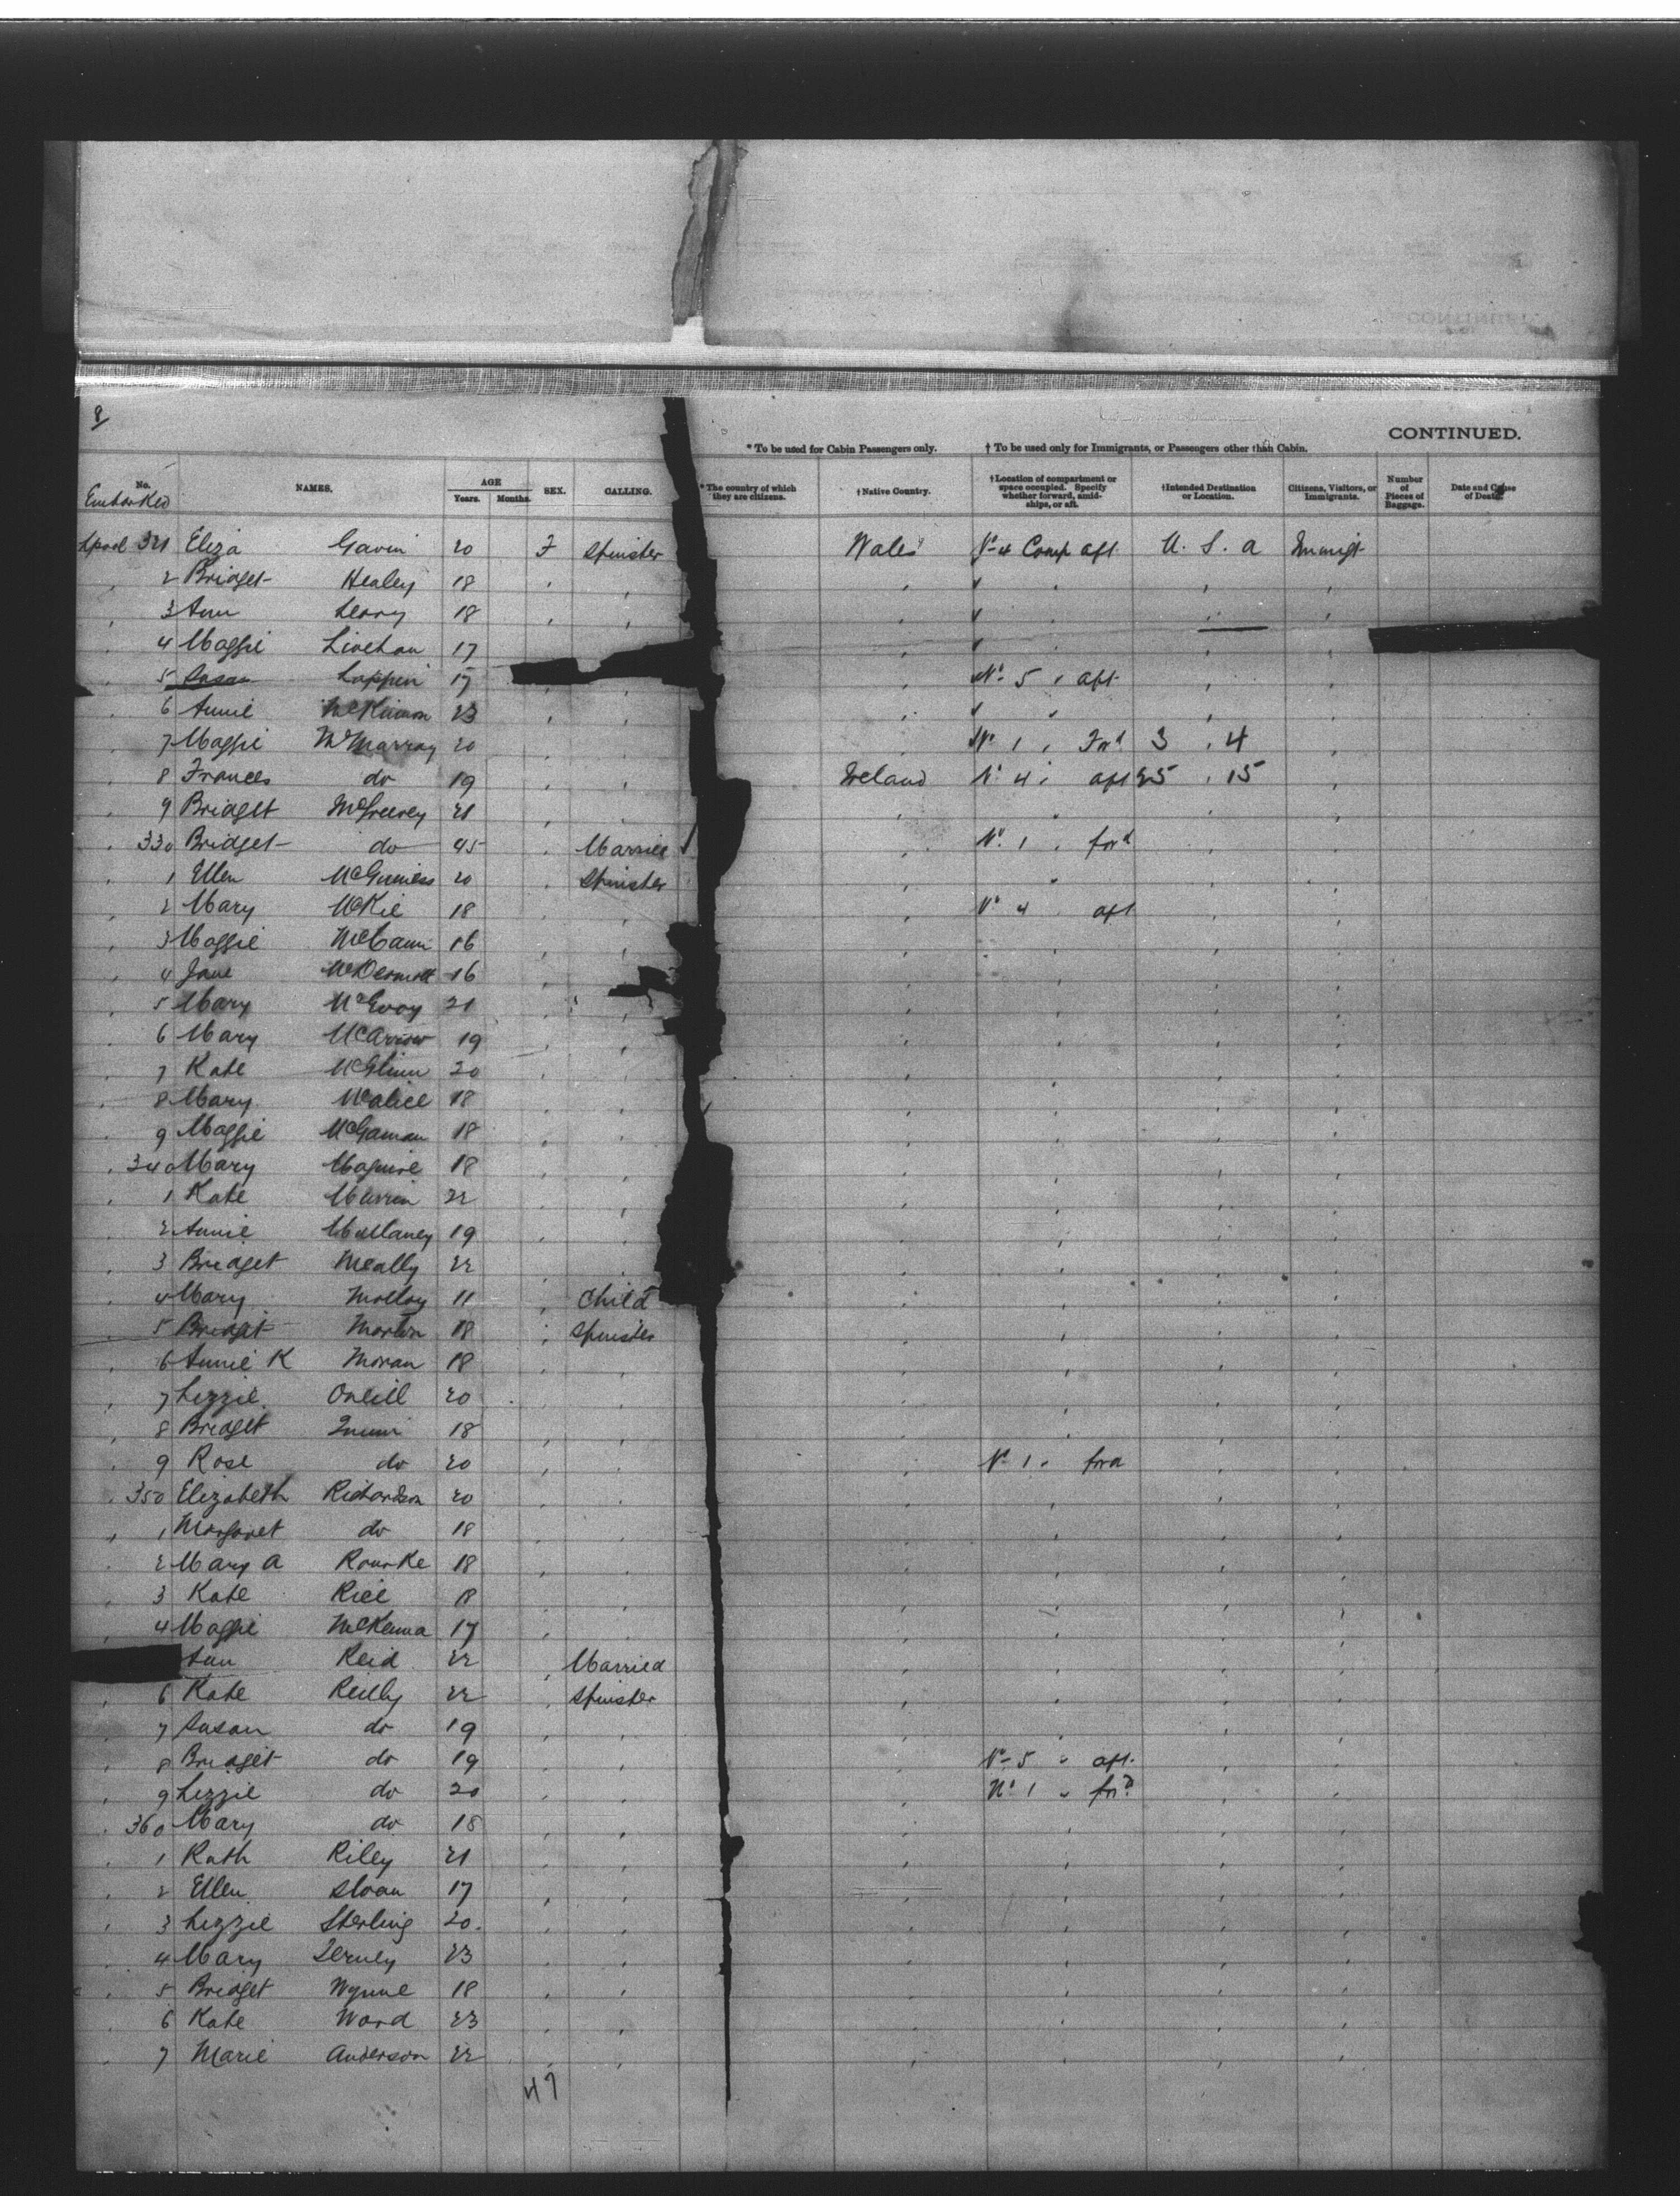 8
CONTINUED.
* To be used for Cabin Passengers only. † To be used only for Immigrants, or Passengers other than Cabin.
No. Embarked NAMES. AGE Years. Months. SEX. CALLING. * The country of which they are citizens. † Native Country. † Location of compartment or space occupied. Specify whether forward, amidships, or aft. † Intended Destination or Location. Citizens, Visitors, or Immigrants. Number of Pieces of Baggage. Date and Cause of Death.
Lpool 321 Eliza Gavin 20 F Spinster Wales No 4 Comp aft U. S. a Immigt
2 Bridget Healey 18
3 Ann Leary 18
4 Maggie 17
5 Susan Lappin 17 No 5 " aft
6 Annie McKinnon 23
7 Maggie McMurray 20 No 1 " Ford 3 " 4
8 Frances do 19 Ireland No 4 " aft 35 " 15
9 Bridget McGreevey 21
330 Bridget do 45 Married No 1 " ford
1 Ellen McGuiness 20 Spinster
2 Mary McKie 18 No 4 " aft
3 Maggie McCann 16
4 Jane McDermott 16
5 Mary McEvoy 21
6 Mary 19
7 Kate McGlinn 20
8 Mary 18
9 Maggie 18
340 Mary Maguire 18
1 Kate 22
2 Annie Mullaney 19
3 Bridget Meally 22
4 Mary Molloy 11 Child
5 Bridget Martin 18 Spinster
6 Annie K Moran 18
7 Lizzie Oneill 20
8 Bridget Quinn 18
9 Rose do 20 No 1 " ford
350 Elizabeth Richardson 20
1 Margaret do 18
2 Mary A Rourke 18
3 Kate Rice 18
4 Maggie McKenna 17
Ann Reid 22 Married
6 Kate Reilly 22 Spinster
7 Susan do 19
8 Bridget do 19 No 5 " aft
9 Lizzie do 20 No 1 " ford
360 Mary do 18
1 Kath Riley 21
2 Ellen Sloan 17
3 Lizzie Sterling 20
4 Mary 23
5 Bridget Wynne 18
6 Kate Ward 23
7 Marie Anderson 22
47